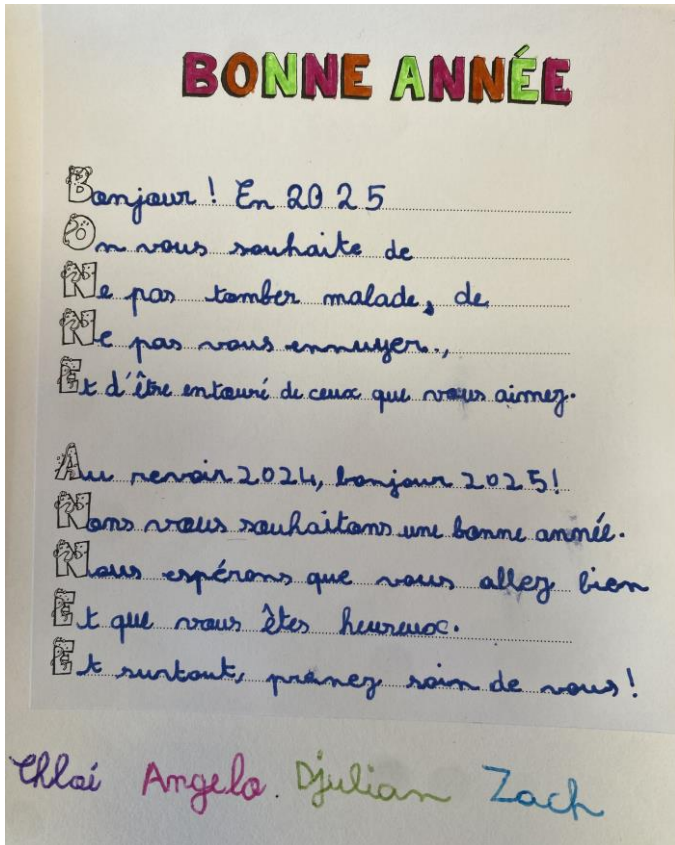 BONNE ANNÉE
Bonjour ! En 2025
On vous souhaite de
Ne pas tomber malade, de
Ne pas vous ennuyer.,
Et d'être entouré de ceux que vous aimez.
Au revoir 2024, bonjour 2025!
Nons vous souhaitons une bonne année.
Nous espérons que vous allez bien
Et que vous êtes heureux.
Et surtout, prenez soin de vous !
Chloé Angelo. Djulian Zach